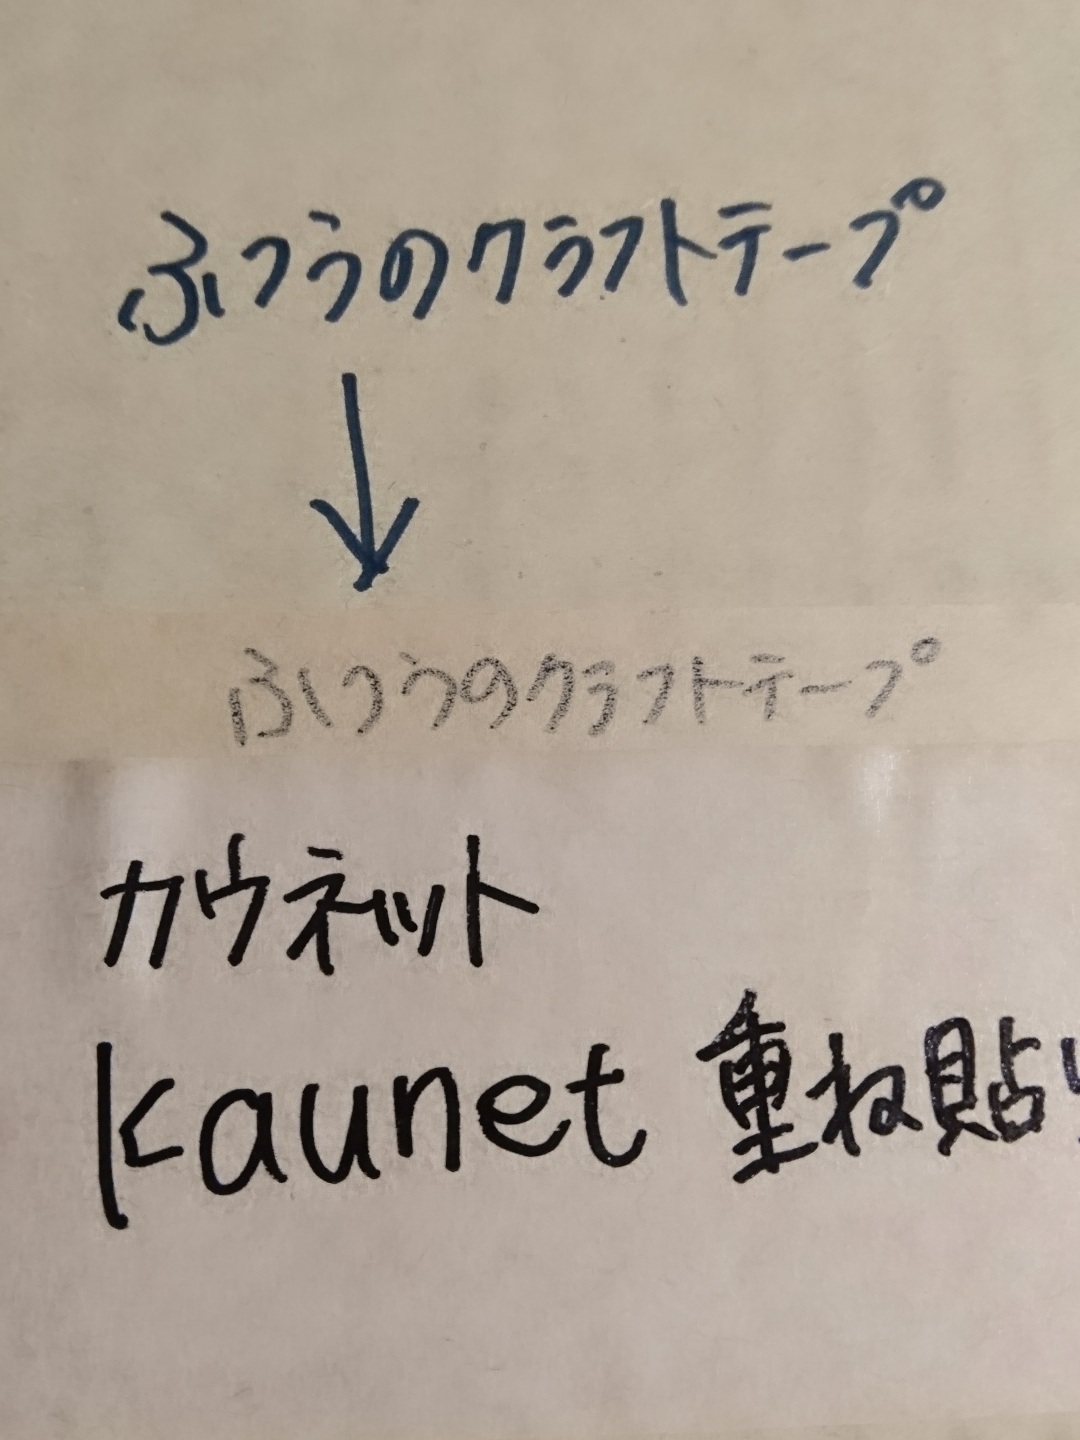 ふつうのクラフトテープ
ふつうのクラフトテープ
カウネット
kaunet 重ね貼り